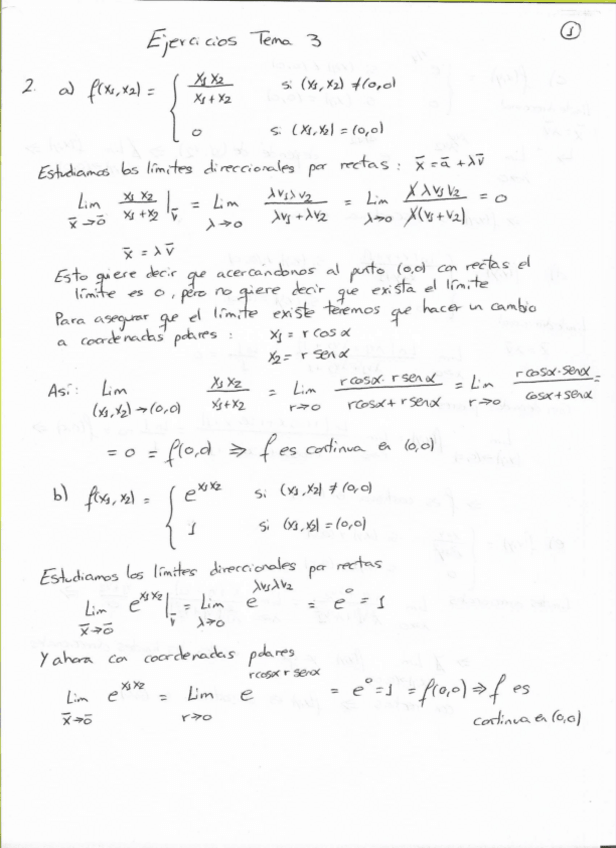 1
Ejercicios Tema 3
2. a) f(x₁,x₂) = { x₁x₂ / (x₁+x₂)   si (x₁,x₂) ≠ (0,0)
0   si (x₁,x₂) = (0,0)
Estudiamos los límites direccionales por rectas : x̄ = ā + λv̄
Lim x̄→ō x₁x₂/(x₁+x₂) |v̄ = Lim λ→0 λv₁λv₂/(λv₁+λv₂) = Lim λ→0 λ̸λv₁v₂/(λ̸(v₁+v₂)) = 0
x̄ = λv̄
Esto quiere decir que acercandonos al punto (0,0) con rectas el
límite es 0, pero no quiere decir que exista el límite
Para asegurar que el límite existe tenemos que hacer un cambio
a coordenadas polares : x₁ = r cos α
x₂ = r sen α
Así: Lim (x₁,x₂)→(0,0) x₁x₂/(x₁+x₂) = Lim r→0 r cosα · r senα/(r cosα + r senα) = Lim r→0 r cosα · senα/(cosα + senα) =
= 0 = f(0,0) ⇒ f es continua en (0,0)
b) f(x₁,x₂) = { e^(x₁x₂)   si (x₁,x₂) ≠ (0,0)
1   si (x₁,x₂) = (0,0)
Estudiamos los límites direccionales por rectas
Lim x̄→ō e^(x₁x₂) |v̄ = Lim λ→0 e^(λv₁λv₂) = e⁰ = 1
Y ahora con coordenadas polares
Lim x̄→ō e^(x₁x₂) = Lim r→0 e^(r cosα r senα) = e⁰ = 1 = f(0,0) ⇒ f es
continua en (0,0)